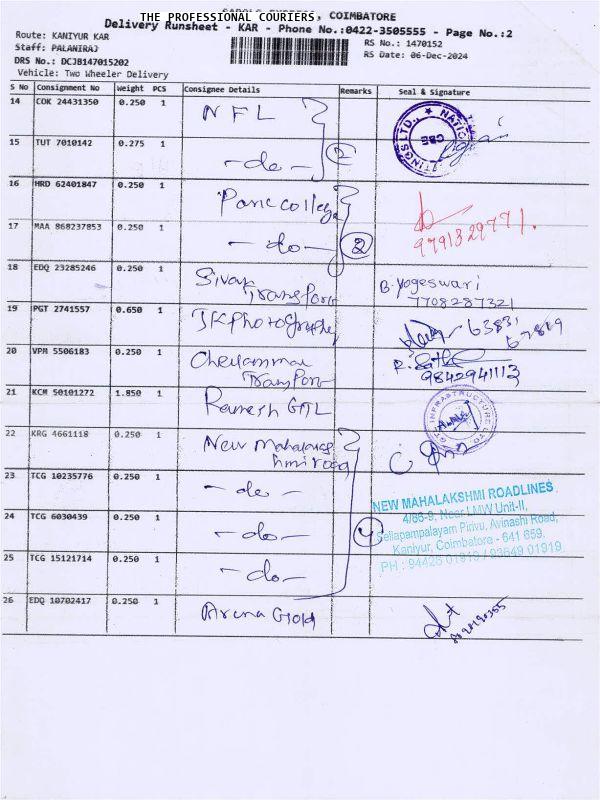 THE PROFESSIONAL COURIERS, COIMBATORE
Delivery Runsheet - KAR - Phone No.:0422-3505555 - Page No.:2
Route: KANIYUR KAR
RS No.: 1470152
Staff: PALANIRAJ
RS Date: 06-Dec-2024
DRS No.: DCJB147015202
Vehicle: Two Wheeler Delivery
S No Consignment No Weight PCS Consignee Details Remarks Seal & Signature
14 COK 24431350 0.250 1 NFL
15 TUT 7010142 0.275 1 -do- 2
16 HRD 62401847 0.250 1 Parc college
9791329771.
17 MAA 868237853 0.250 1 -do- 2
18 EDQ 23285246 0.250 1 Sivan Transport B. Yogeswari
7708287321
19 PGT 2741557 0.650 1 JK photography 63831
67819
20 VPM 5506183 0.250 1 Chellammal Transport
9842941113
21 KCM 50101272 1.850 1 Ramesh GTL
INFRASTRUCTURE LTD
22 KRG 4661118 0.250 1 New Mahalakshmi road
23 TCG 10235776 0.250 1 -do-
24 TCG 6030439 0.250 1 -do- 4
25 TCG 15121714 0.250 1 -do-
NEW MAHALAKSHMI ROADLINES
4/66-9, Near LMW Unit-II,
Sellapampalayam Pirivu, Avinashi Road,
Kaniyur, Coimbatore - 641 659.
26 EDQ 10702417 0.250 1 Arena Gold